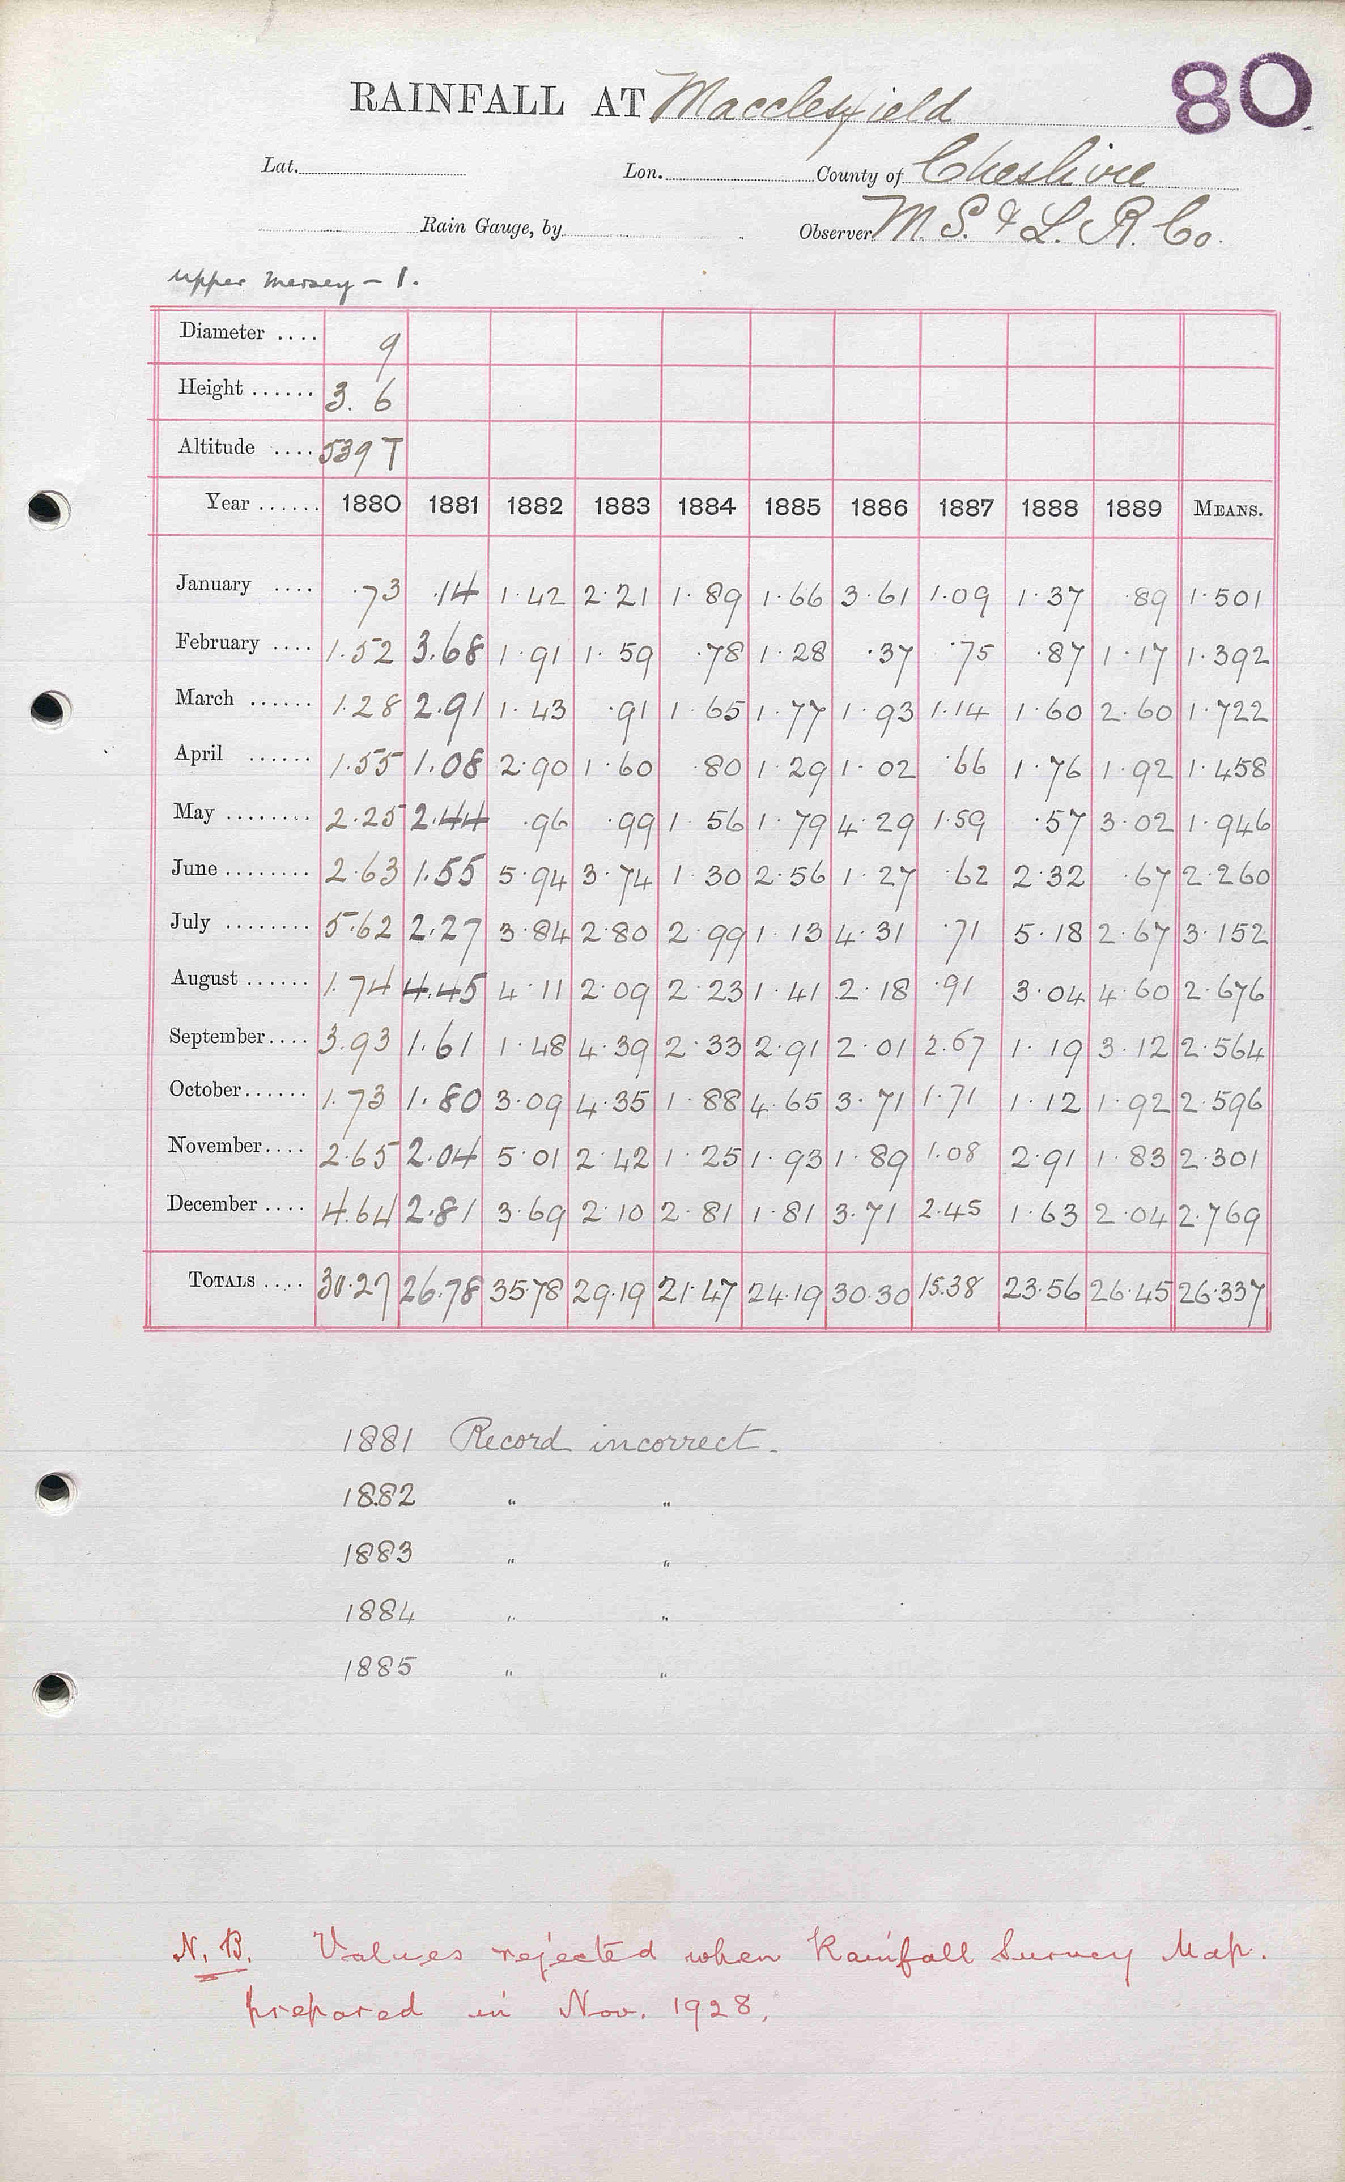 80
RAINFALL AT Macclesfield
Lat. Lon. County of Cheshire
Rain Gauge, by Observer M. S. & L. R. Co.
Upper Mersey – 1.
Diameter .... 9
Height ...... 3. 6
Altitude .... 539 T
Year ...... 1880 1881 1882 1883 1884 1885 1886 1887 1888 1889 MEANS.
January .... .73 .14 1.42 2.21 1.89 1.66 3.61 1.09 1.37 .89 1.501
February .... 1.52 3.68 1.91 1.59 .78 1.28 .37 .75 .87 1.17 1.392
March ...... 1.28 2.91 1.43 .91 1.65 1.77 1.93 1.14 1.60 2.60 1.722
April ...... 1.55 1.08 2.90 1.60 .80 1.29 1.02 .66 1.76 1.92 1.458
May ........ 2.25 2.44 .96 .99 1.56 1.79 4.29 1.59 .57 3.02 1.946
June ........ 2.63 1.55 5.94 3.74 1.30 2.56 1.27 .62 2.32 .67 2.260
July ........ 5.62 2.27 3.84 2.80 2.99 1.13 4.31 .71 5.18 2.67 3.152
August ...... 1.74 4.45 4.11 2.09 2.23 1.41 2.18 .91 3.04 4.60 2.676
September.... 3.93 1.61 1.48 4.39 2.33 2.91 2.01 2.67 1.19 3.12 2.564
October...... 1.73 1.80 3.09 4.35 1.88 4.65 3.71 1.71 1.12 1.92 2.596
November.... 2.65 2.04 5.01 2.42 1.25 1.93 1.89 1.08 2.91 1.83 2.301
December .... 4.64 2.81 3.69 2.10 2.81 1.81 3.71 2.45 1.63 2.04 2.769
TOTALS .... 30.27 26.78 35.78 29.19 21.47 24.19 30.30 15.38 23.56 26.45 26.337
1881 Record incorrect.
1882 " "
1883 " "
1884 " "
1885 " "
N. B. Values rejected when Rainfall Survey Map.
prepared in Nov. 1928.